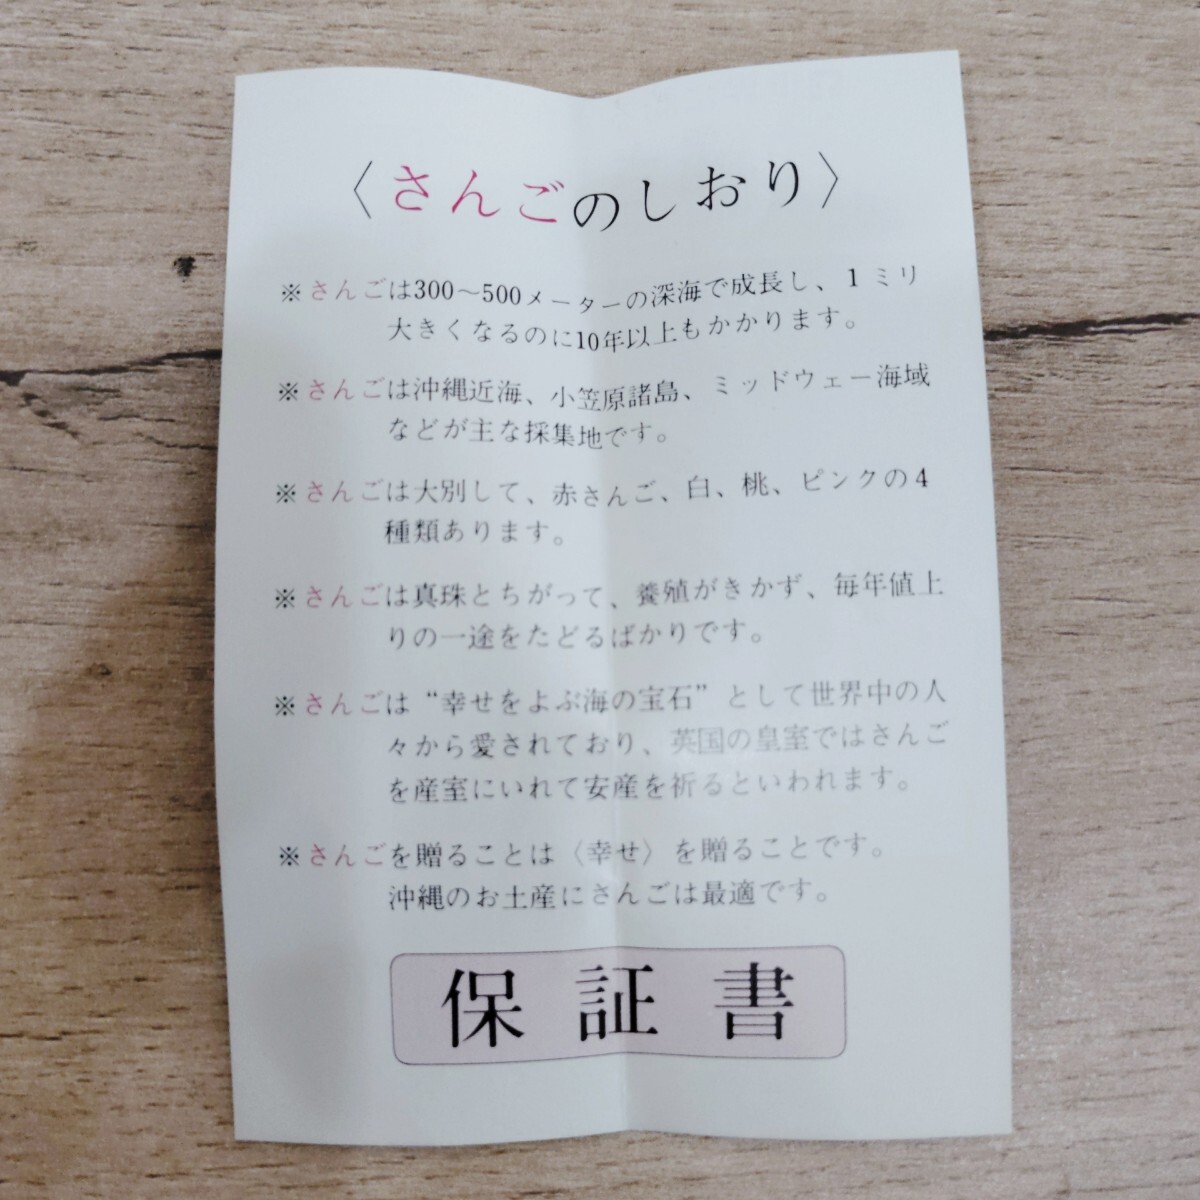 〈さんごのしおり〉
※さんごは300〜500メーターの深海で成長し、1ミリ
大きくなるのに10年以上もかかります。
※さんごは沖縄近海、小笠原諸島、ミッドウェー海域
などが主な採集地です。
※さんごは大別して、赤さんご、白、桃、ピンクの4
種類あります。
※さんごは真珠とちがって、養殖がきかず、毎年値上
りの一途をたどるばかりです。
※さんごは“幸せをよぶ海の宝石”として世界中の人
々から愛されており、英国の皇室ではさんご
を産室にいれて安産を祈るといわれます。
※さんごを贈ることは〈幸せ〉を贈ることです。
沖縄のお土産にさんごは最適です。
保証書